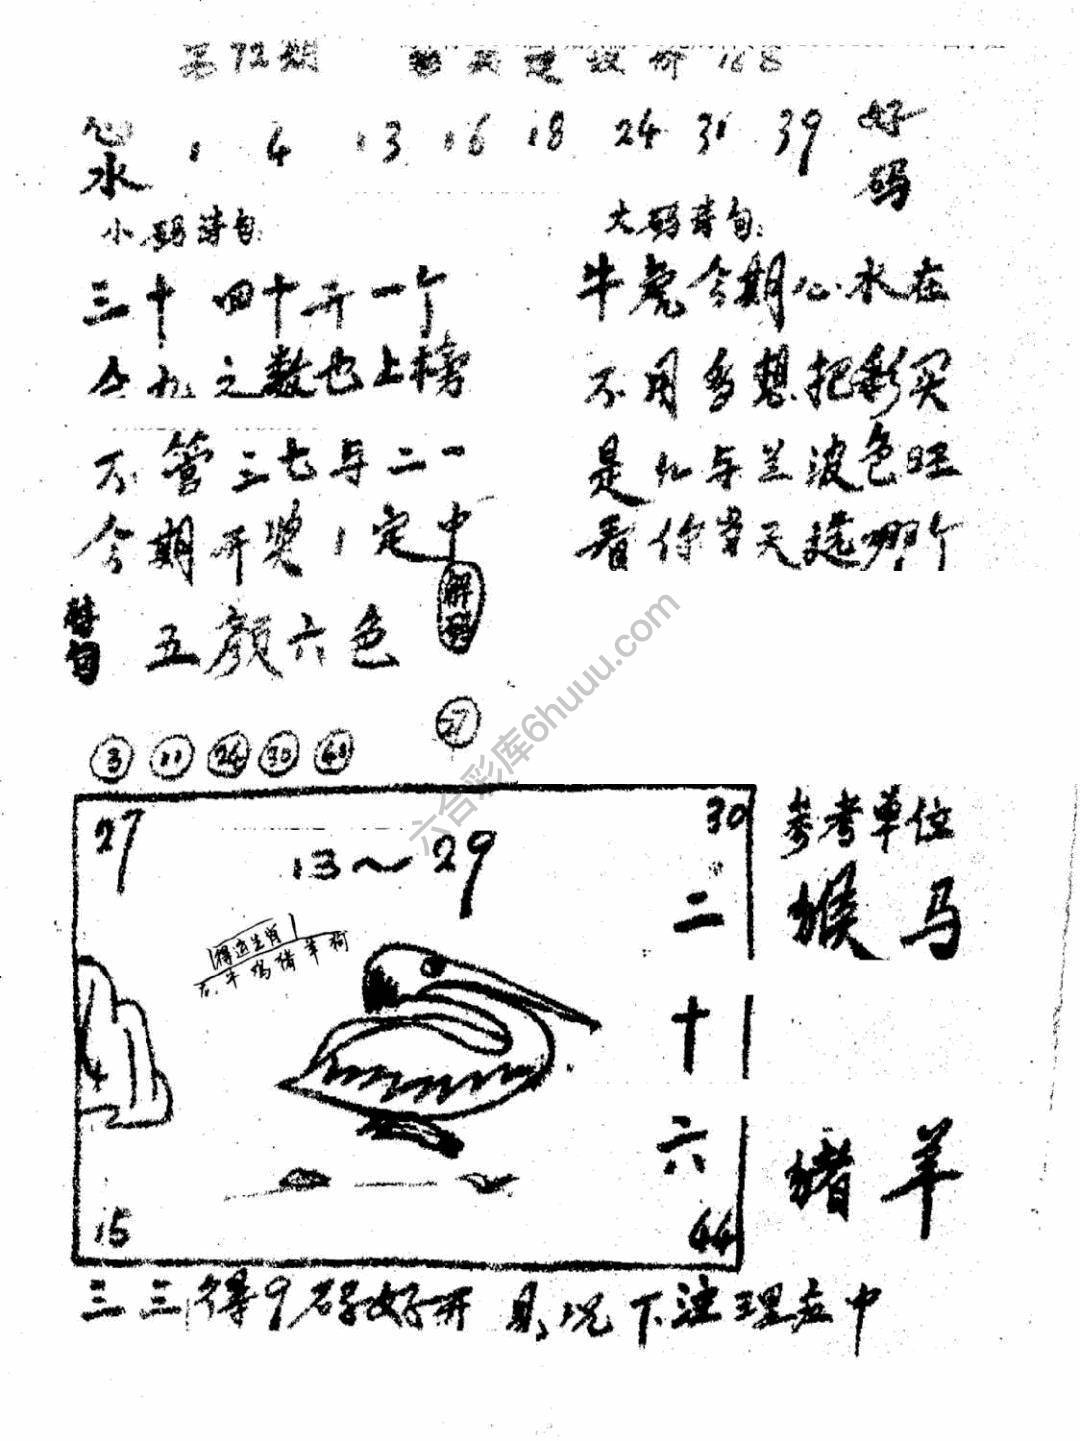 第72期 168
心水 1 4 13 16 18 24 31 39 好码
小码诗句:
三十四十开一个
么九之数也上榜
不管三七与二一
今期开奖1定中
大码诗句:
牛虎今期心水在
不用多想把彩买
是红与兰波色旺
看你当天选哪个
诗句 五颜六色
解
27
3 11 24 30 41
27 30
13~29
得运生肖
牛鸡猪羊狗
二十六
4
15 44
参考单位
猴马
猪羊
三三得9码好开 下注理在中
六合彩库6huuu.com